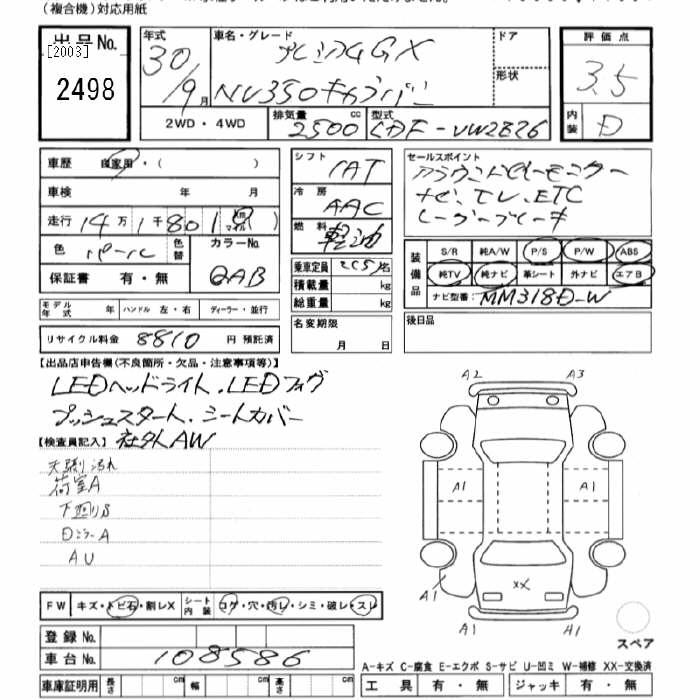 (複合機)対応用紙
出品No.
[2003]
2498
年式
30/9月
車名・グレード
プレミアムGX
NV350キャラバン
ドア
形状
評価点
3.5
内装
D
2WD・4WD
排気量
2500cc
型式
CDF-VW2E26
車歴 自家用・( )
車検 年 月
走行 14万1千801 km マイル
色 パール 色替 カラーNo. QAB
保証書 有・無
シフト
1AT
冷房
AAC
燃料
軽油
乗車定員 2(5)名
積載量 kg
総重量 kg
セールスポイント
アラウンドビューモニター
ナビ、TV、ETC
レーダーブレーキ
装備品
S/R 純A/W P/S P/W ABS
純TV 純ナビ 革シート 外ナビ エアB
ナビ型番: MM318D-W
モデル年式 年 ハンドル 左・右 ディーラー・並行
リサイクル料金 8810 円 預託済
名変期限
月 日
後日品
【出品店申告欄(不良箇所・欠品・注意事項等)】
LEDヘッドライト、LEDフォグ
プッシュスタート、シートカバー
社外AW
【検査員記入】
天張り汚れ
荷室A
下回りS
Dミラー A
AU
A2 A3
A1 A1
XX
A1
A1 A1
スペア
FW キズ・トビ石・割レX シート内装 コゲ・穴・汚レ・シミ・破レ・スレ
登録No.
車台No. 108586
車庫証明用 長さ cm 幅 cm 高さ cm
A-キズ C-腐食 E-エクボ S-サビ U-凹ミ W-補修 XX-交換済
工具 有・無 ジャッキ 有・無